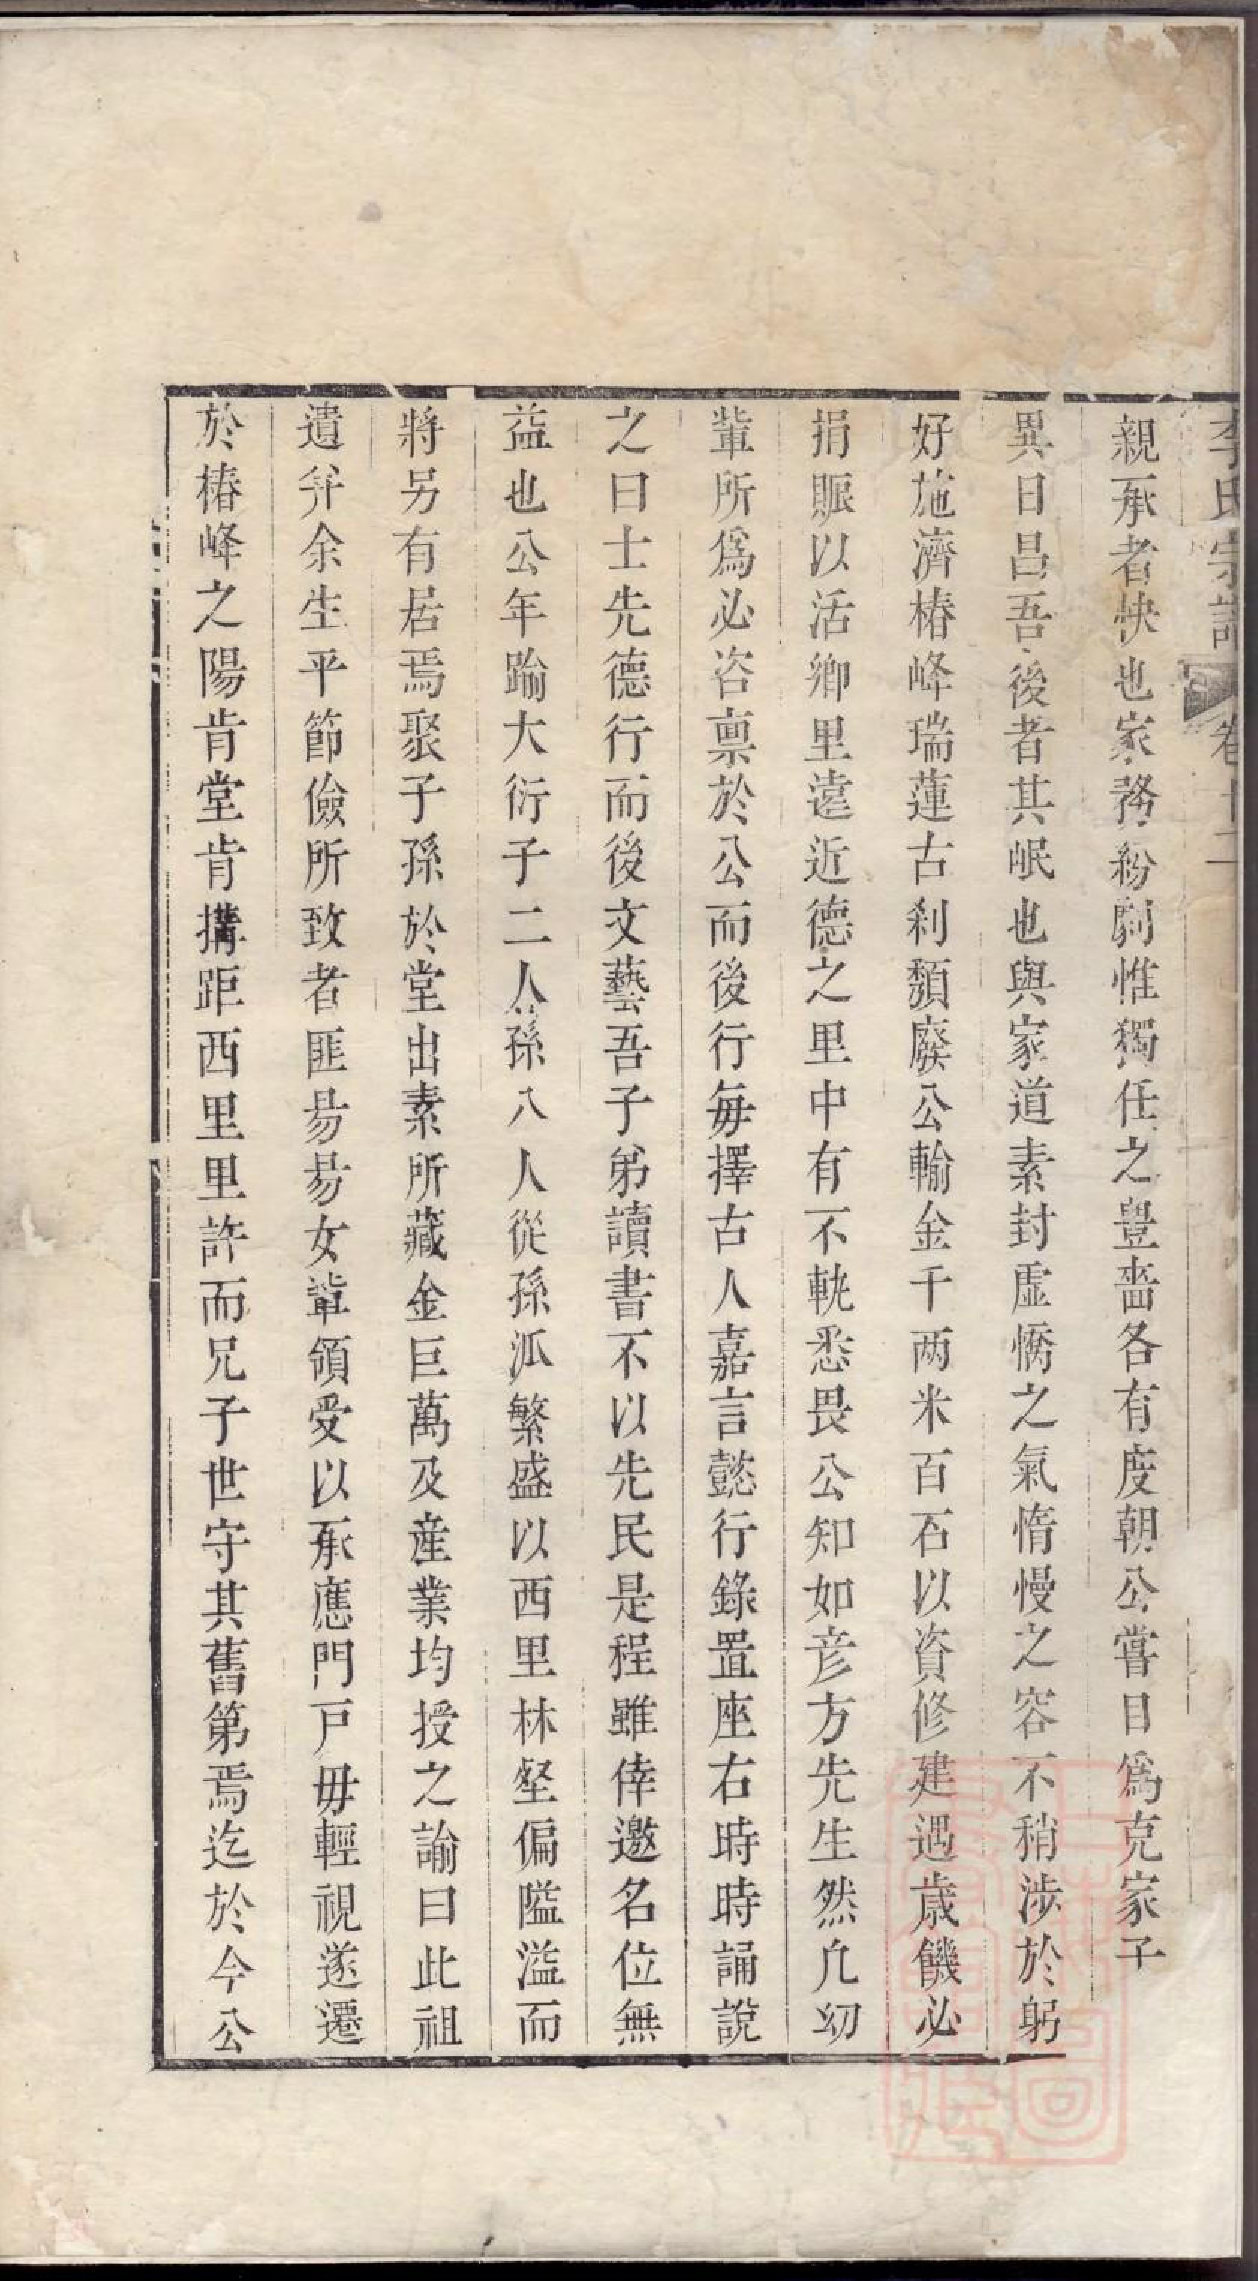 李氏宗譜 卷十二
親承者快也家務紛劇惟獨任之豊嗇各有度朝公嘗目爲克家子
異日昌吾後者其岷也與家道素封虛憍之氣惰慢之容不稍涉於躬
好施濟椿峰瑞蓮古刹頽廢公輸金千两米百石以資修建遇歲饑必
捐賑以活鄉里遠近德之里中有不軌悉畏公知如彥方先生然凢幼
輩所爲必咨禀於公而後行每擇古人嘉言懿行錄置座右時時誦說
之曰士先德行而後文藝吾子弟讀書不以先民是程雖倖邀名位無
益也公年踰大衍子二人孫八人從孫泒繁盛以西里林壑偏隘溢而
將另有居焉聚子孫於堂出素所藏金巨萬及産業均授之諭曰此祖
遺并余生平節儉所致者匪易易女輩領受以承應門戸毋輕視遂遷
於椿峰之陽肯堂肯搆距西里里許而兄子世守其舊第焉迄於今公